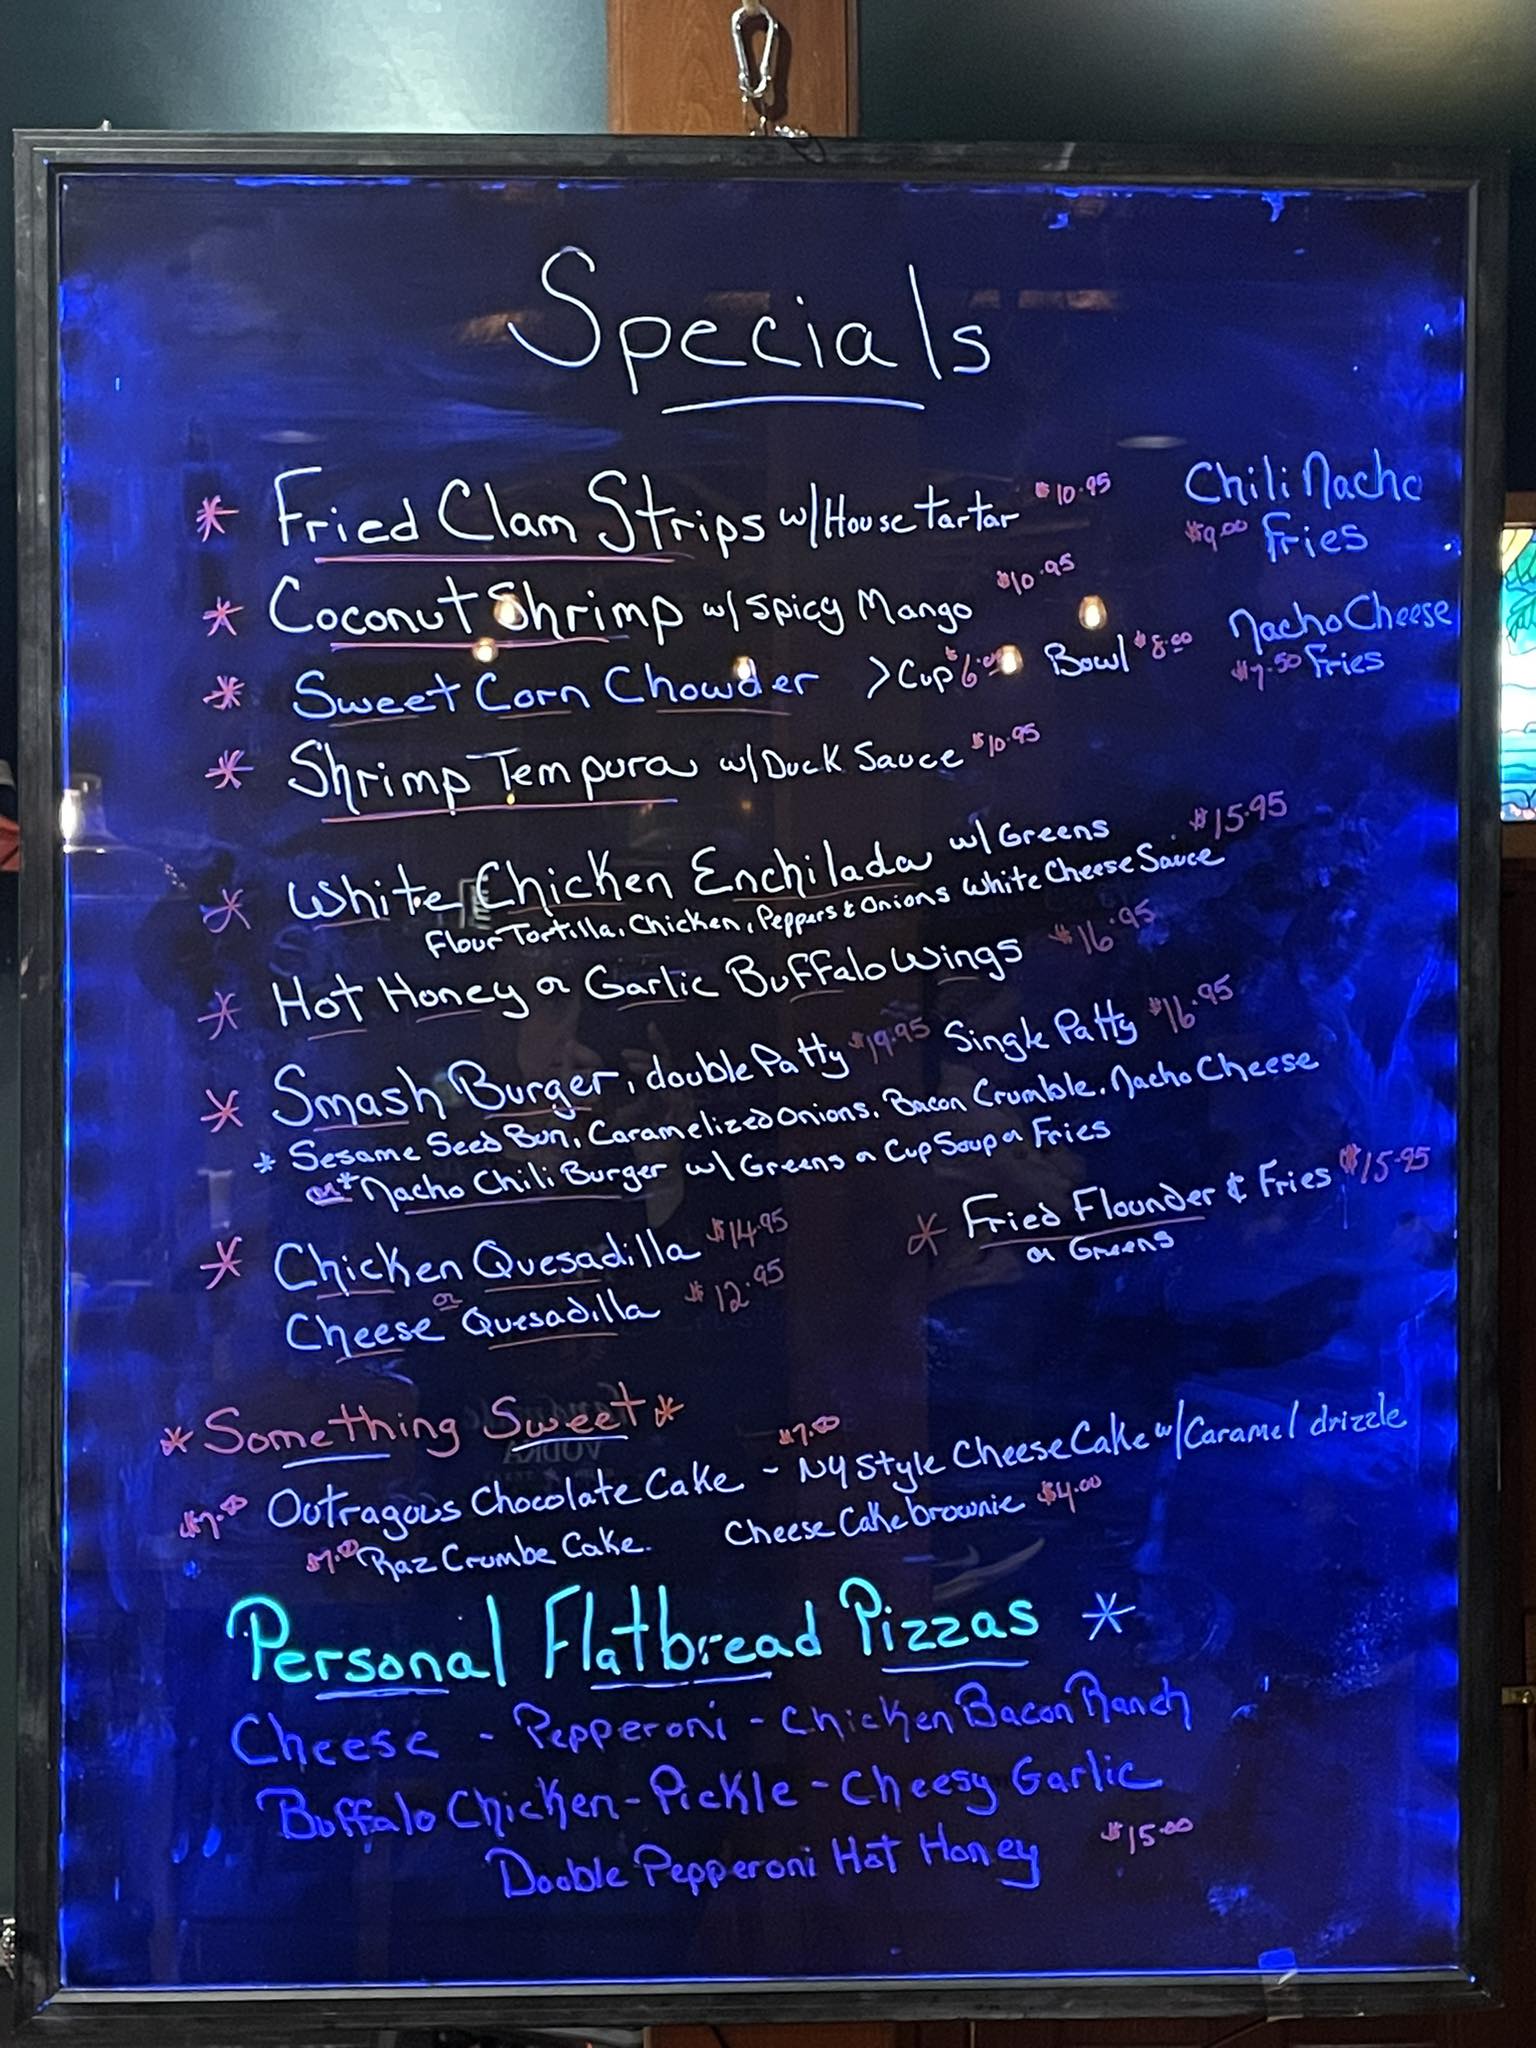 Specials
* Fried Clam Strips w/House tartar $10.95
Chili Nacho
$9.00 Fries
* Coconut Shrimp w/Spicy Mango $10.95
* Sweet Corn Chowder >Cup $6.00 Bowl $8.00
Nacho Cheese
$7.50 Fries
* Shrimp Tempura w/Duck Sauce $10.95
* White Chicken Enchilada w/ Greens $15.95
Flour Tortilla, Chicken, Peppers & Onions White Cheese Sauce
* Hot Honey or Garlic Buffalo Wings $16.95
* Smash Burger, double Patty $19.95 Single Patty $16.95
* Sesame Seed Bun, Caramelized Onions, Bacon Crumble, Nacho Cheese
or * Nacho Chili Burger w/ Greens or Cup Soup or Fries
* Chicken Quesadilla $14.95
or
Cheese Quesadilla $12.95
* Fried Flounder & Fries $15.95
or Greens
* Something Sweet *
$7.00 Outragous Chocolate Cake - $7.00 NY Style Cheese Cake w/Caramel drizzle
$7.00 Raz Crumbe Cake. Cheese Cake brownie $4.00
Personal Flatbread Pizzas *
Cheese - Pepperoni - Chicken Bacon Ranch
Buffalo Chicken - Pickle - Cheesy Garlic
Double Pepperoni Hot Honey $15.00